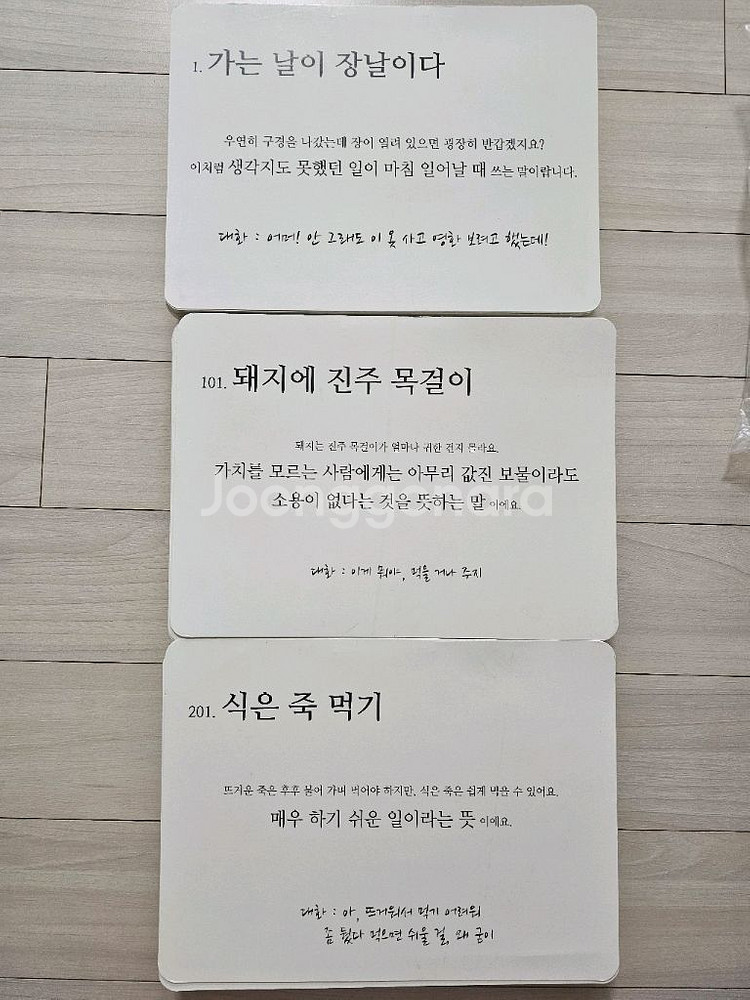 1. 가는 날이 장날이다
우연히 구경을 나갔는데 장이 열려 있으면 굉장히 반갑겠지요?
이처럼 생각지도 못했던 일이 마침 일어날 때 쓰는 말이랍니다.
대화 : 어머! 안 그래도 이 옷 사고 영화 보려고 했는데!
101. 돼지에 진주 목걸이
돼지는 진주 목걸이가 얼마나 귀한 건지 몰라요.
가치를 모르는 사람에게는 아무리 값진 보물이라도
소용이 없다는 것을 뜻하는 말이에요.
Joonggonara
대화 : 이게 뭐야, 먹을 거나 주지
201. 식은 죽 먹기
뜨거운 죽은 후후 불어 가며 먹어야 하지만, 식은 죽은 쉽게 먹을 수 있어요.
매우 하기 쉬운 일이라는 뜻이에요.
대화 : 아, 뜨거워서 먹기 어려워
좀 뒀다 먹으면 쉬울 걸, 왜 굳이